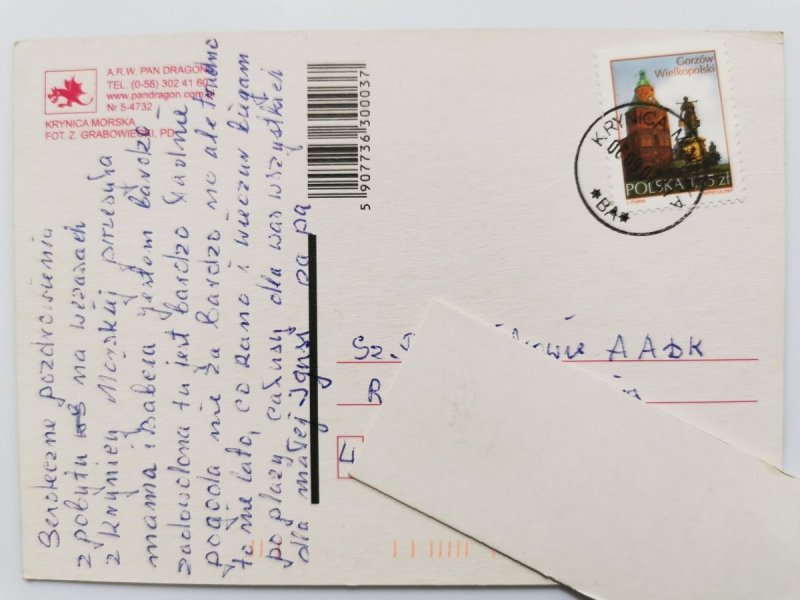 A.R.W. PAN DRAGON
TEL. (0-58) 302 41 60
www.pandragon.com
Nr 5-4732
KRYNICA MORSKA
FOT. Z. GRABOWIECKI, PD
Serdeczne pozdrowienia
z pobytu na wczasach
z Krynicy Morskiej przesyła
mama i Babcia jestem bardzo
zadowolona tu jest bardzo ładnie
pogoda nie za bardzo no ale trudno
to nie lato, co rano i wieczur biegam
po plaży całusy dla was wszystkich
dla małej Igusi pa pa
5 907736 300037
Gorzów
Wielkopolski
POLSKA
zł
KRYNICA
*BA*
Sz.
AADK